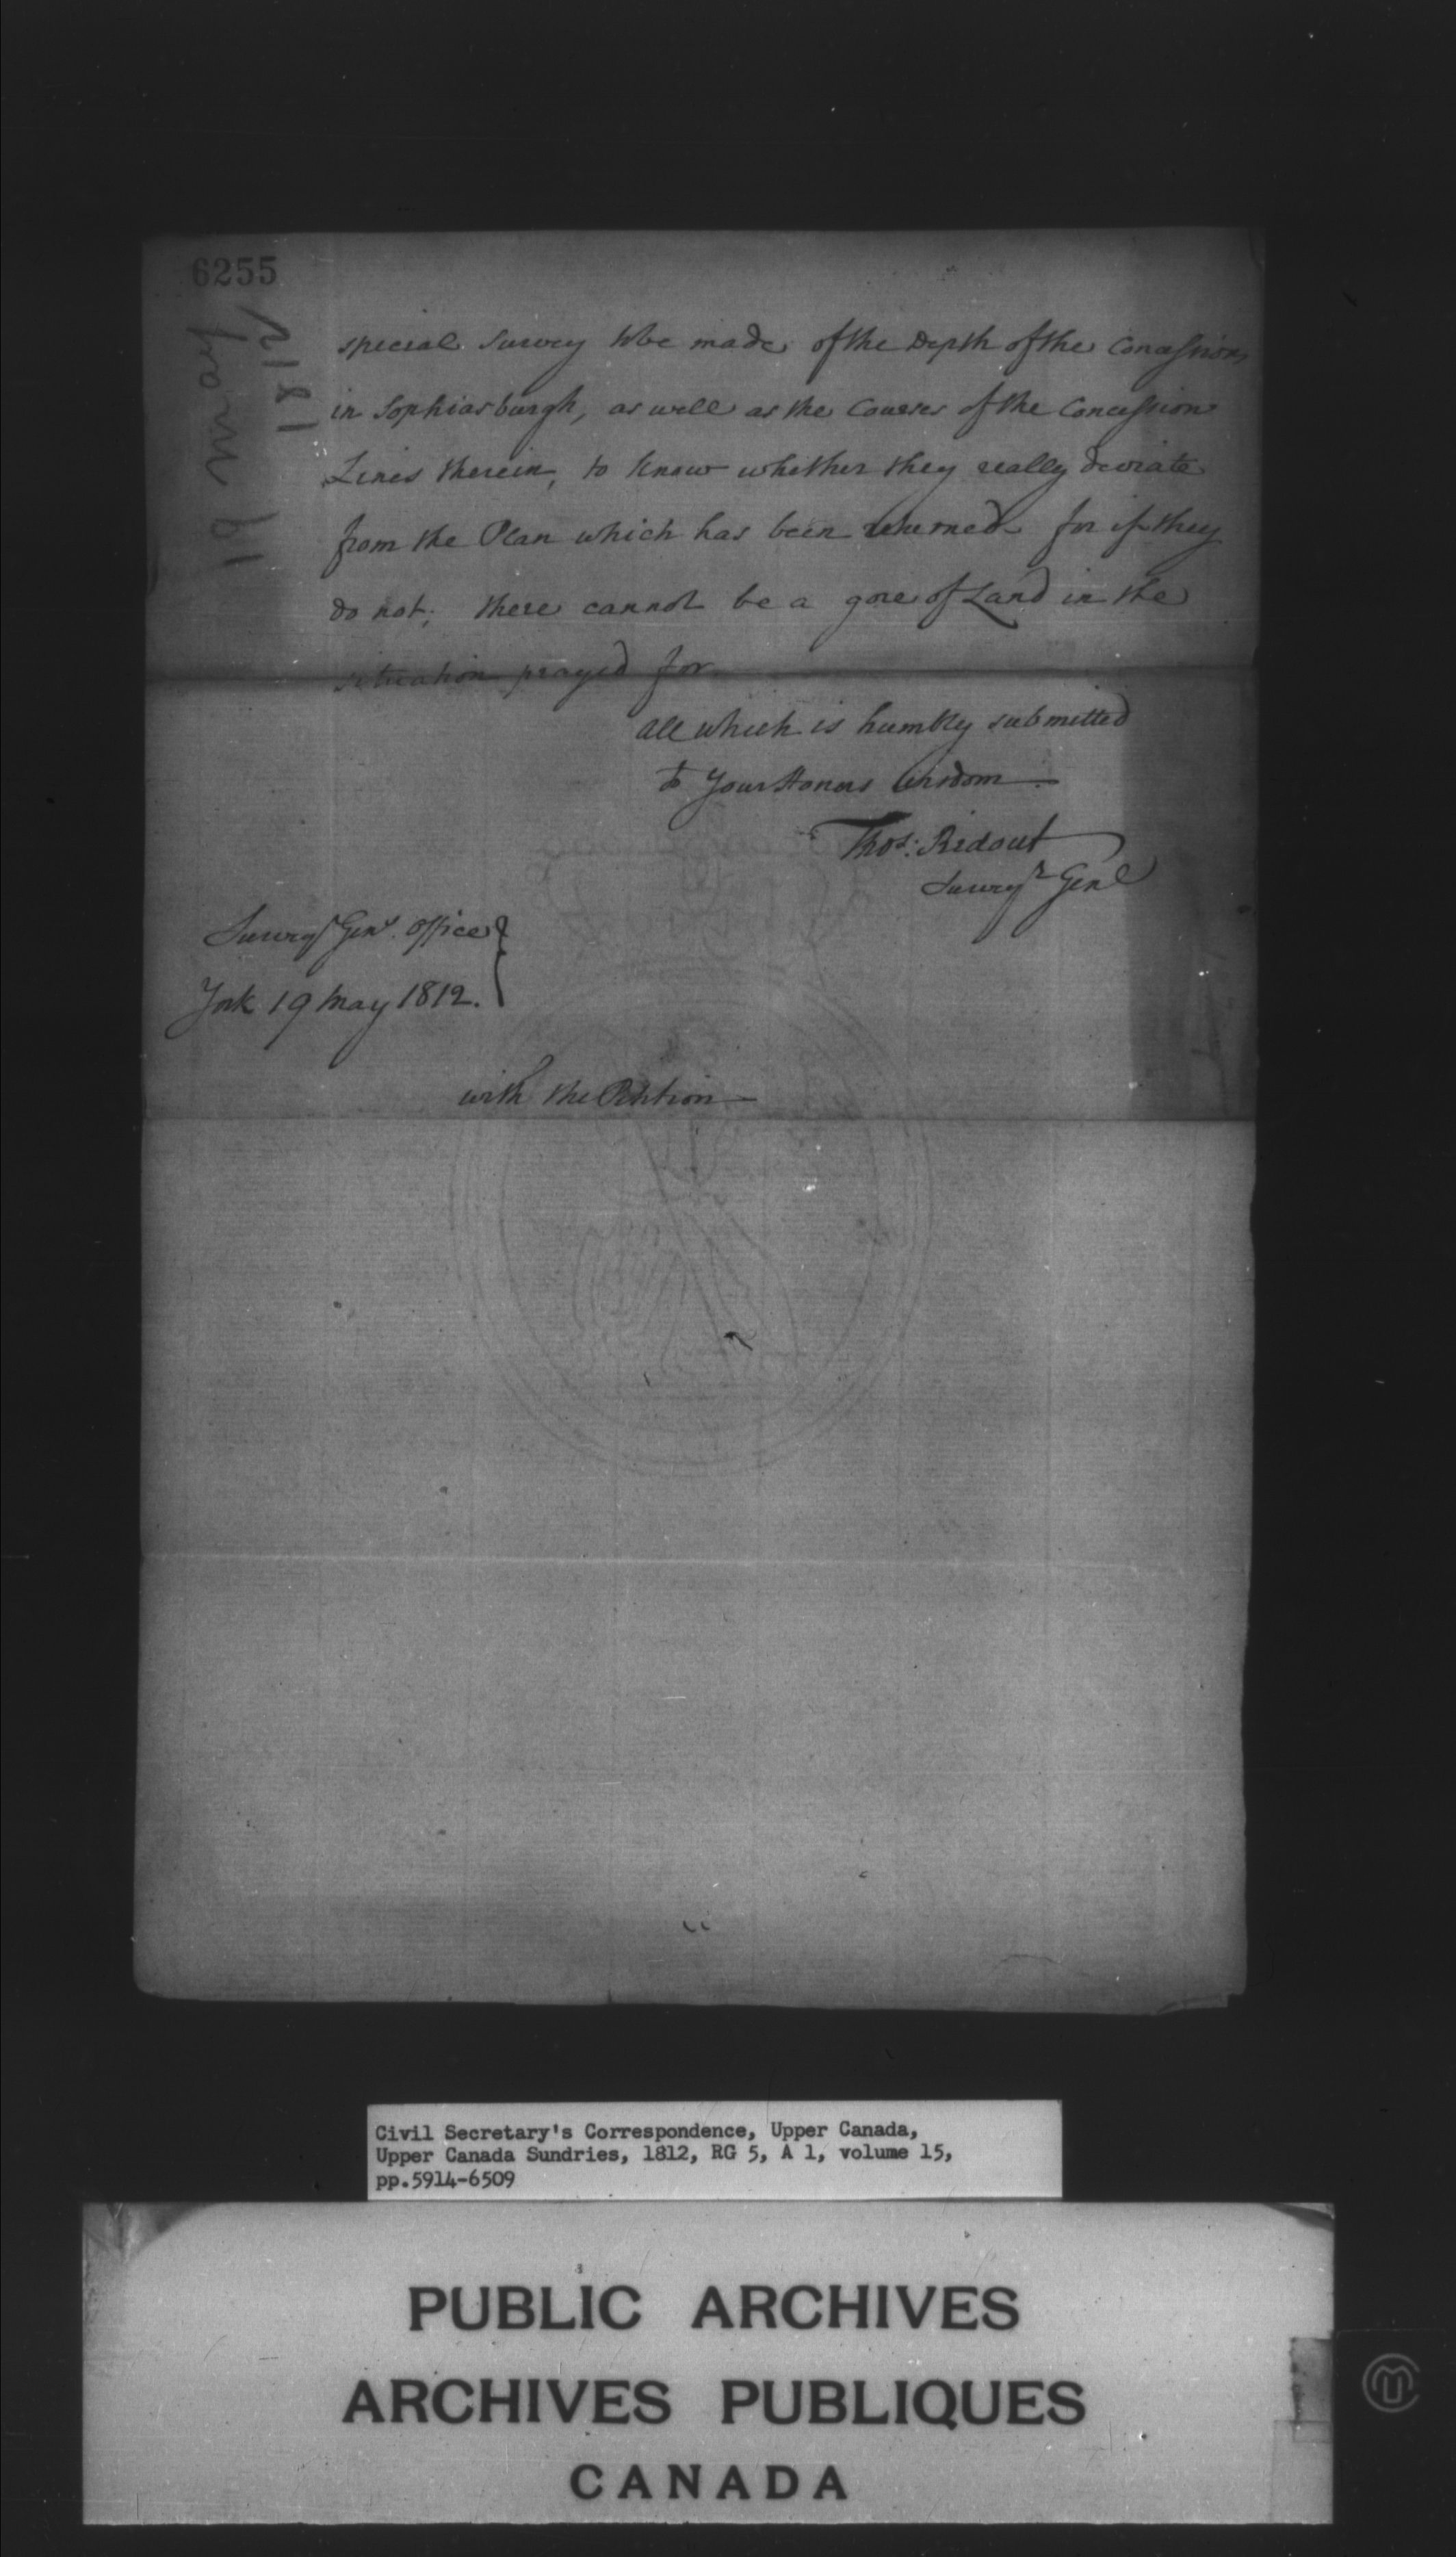 6255
19 may
1812
special Survey to be made of the Depth of the Concessions
in Sophiasburgh, as well as the Courses of the Concession
Lines therein, to know whether they really deviate
from the Plan which has been returned for if they
do not; there cannot be a gore of Land in the
situation prayed for.
All which is humbly submitted
to Your Honors Wisdom
Thos: Ridout
Survyr Genl
Survyr Genl. Office
York 19 May 1812.
with the Petition
Civil Secretary's Correspondence, Upper Canada,
Upper Canada Sundries, 1812, RG 5, A 1, volume 15,
pp.5914-6509
PUBLIC ARCHIVES
ARCHIVES PUBLIQUES
CANADA